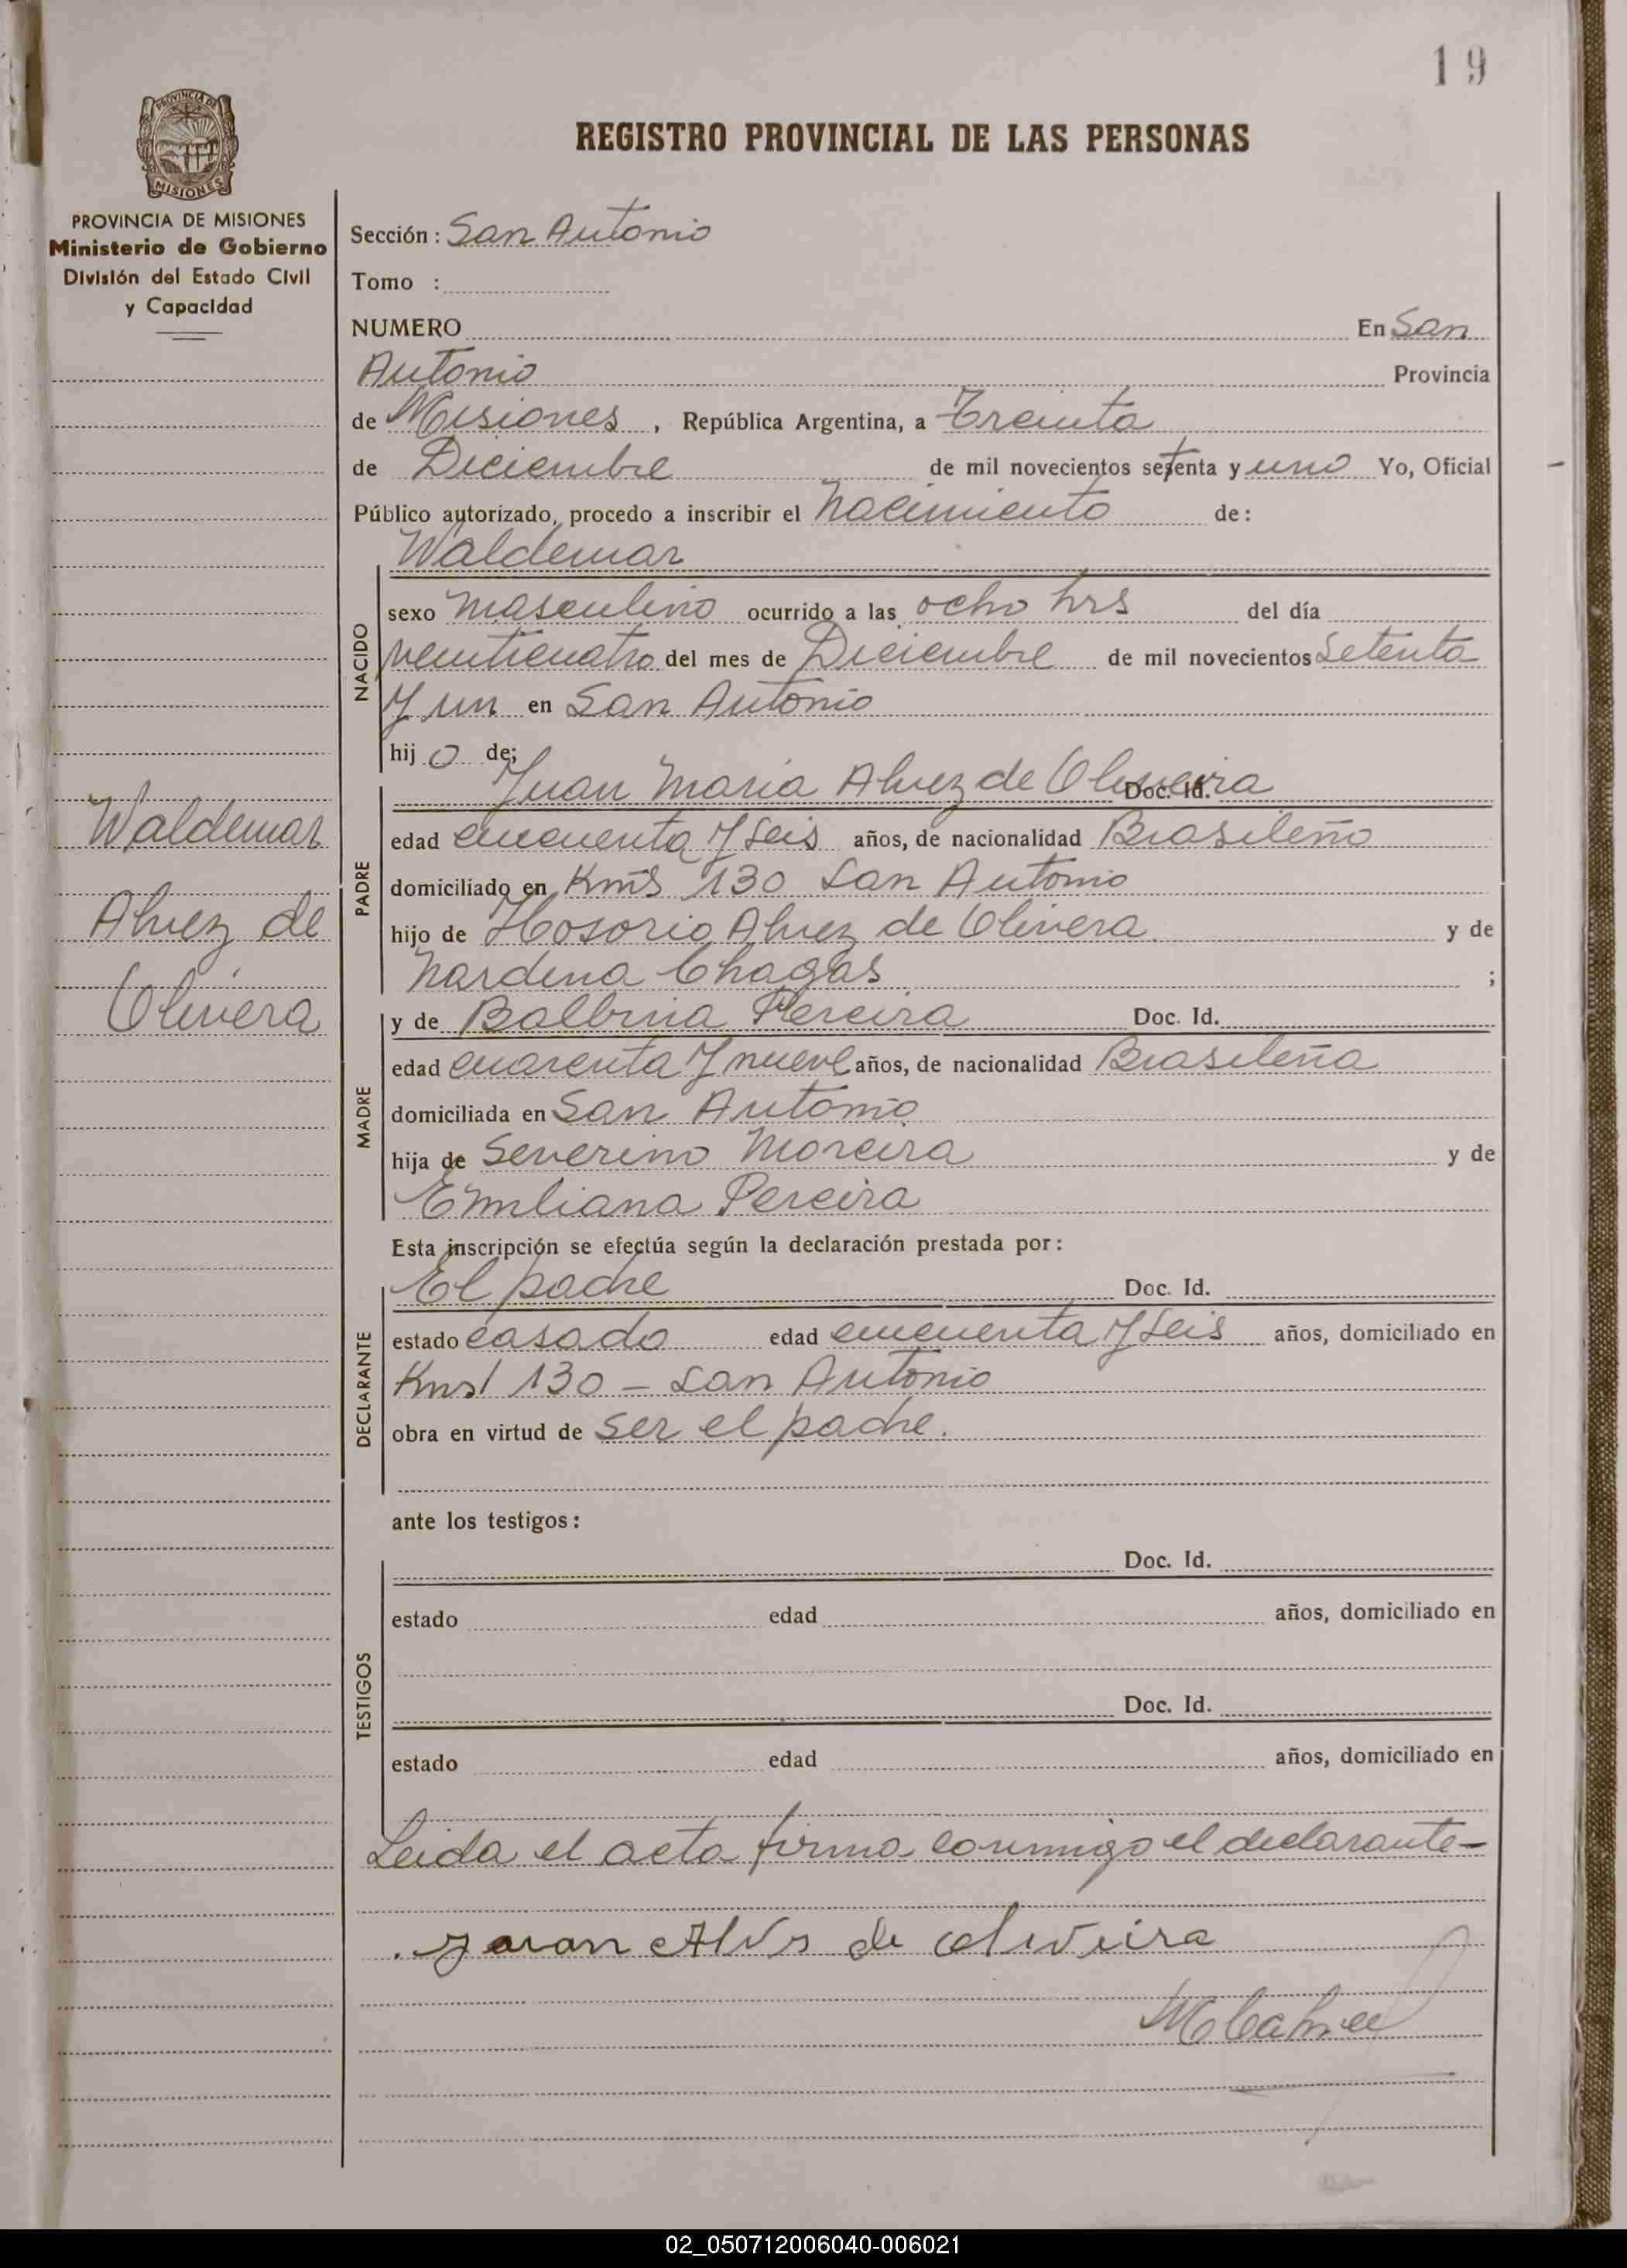 19
PROVINCIA DE
MISIONES
REGISTRO PROVINCIAL DE LAS PERSONAS
PROVINCIA DE MISIONES
Ministerio de Gobierno
División del Estado Civil
y Capacidad
Sección: San Antonio
Tomo :
NUMERO En San
Antonio Provincia
de Misiones, República Argentina, a Treinta
de Diciembre de mil novecientos setenta y uno Yo, Oficial
Público autorizado, procedo a inscribir el Nacimiento de:
Waldemar
NACIDO
sexo masculino ocurrido a las ocho hrs del día
veinticuatro del mes de Diciembre de mil novecientos Setenta
y un en San Antonio
hijo de;
Juan Maria Alvez de Oliveira Doc. Id.
PADRE
edad cincuenta y seis años, de nacionalidad Brasileño
domiciliado en Kms 130 San Antonio
hijo de Hosorio Alvez de Olivera y de
Nardina Chagas ;
Waldemar
Alvez de
Olivera
y de Balbina Pereira Doc. Id.
MADRE
edad cuarenta y nueve años, de nacionalidad Brasileña
domiciliada en San Antonio
hija de Severino Moreira y de
Emiliana Pereira
Esta inscripción se efectúa según la declaración prestada por:
El padre Doc. Id.
DECLARANTE
estado casado edad cincuenta y seis años, domiciliado en
Kms 130 - San Antonio
obra en virtud de ser el padre.
ante los testigos:
Doc. Id.
TESTIGOS
estado edad años, domiciliado en
Doc. Id.
estado edad años, domiciliado en
Leida el acta firma conmigo el declarante-
de oliveira
02_050712006040-006021